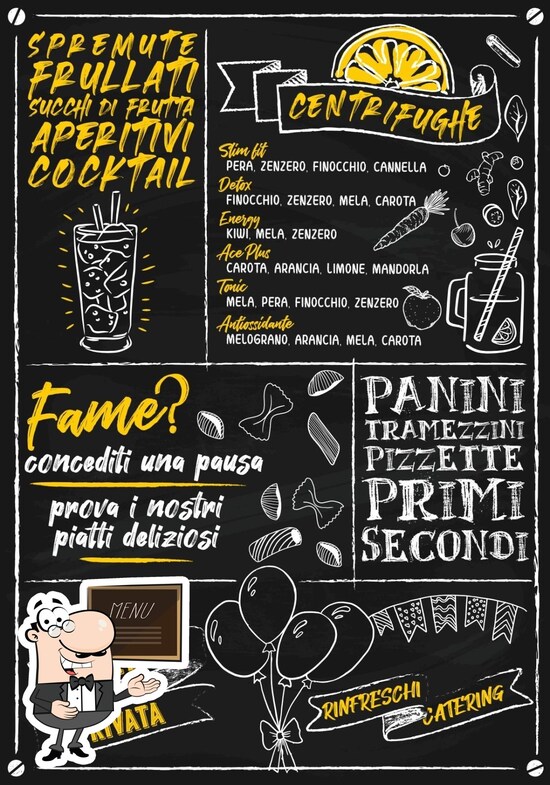 SPREMUTE
FRULLATI
SUCCHI DI FRUTTA
APERITIVI
COCKTAIL
CENTRIFUGHE
Slim fit
PERA, ZENZERO, FINOCCHIO, CANNELLA
Detox
FINOCCHIO, ZENZERO, MELA, CAROTA
Energy
KIWI, MELA, ZENZERO
Ace Plus
CAROTA, ARANCIA, LIMONE, MANDORLA
Tonic
MELA, PERA, FINOCCHIO, ZENZERO
Antiossidante
MELOGRANO, ARANCIA, MELA, CAROTA
Fame?
concediti una pausa
prova i nostri
piatti deliziosi
PANINI
TRAMEZZINI
PIZZETTE
PRIMI
SECONDI
MENU
RINFRESCHI
CATERING